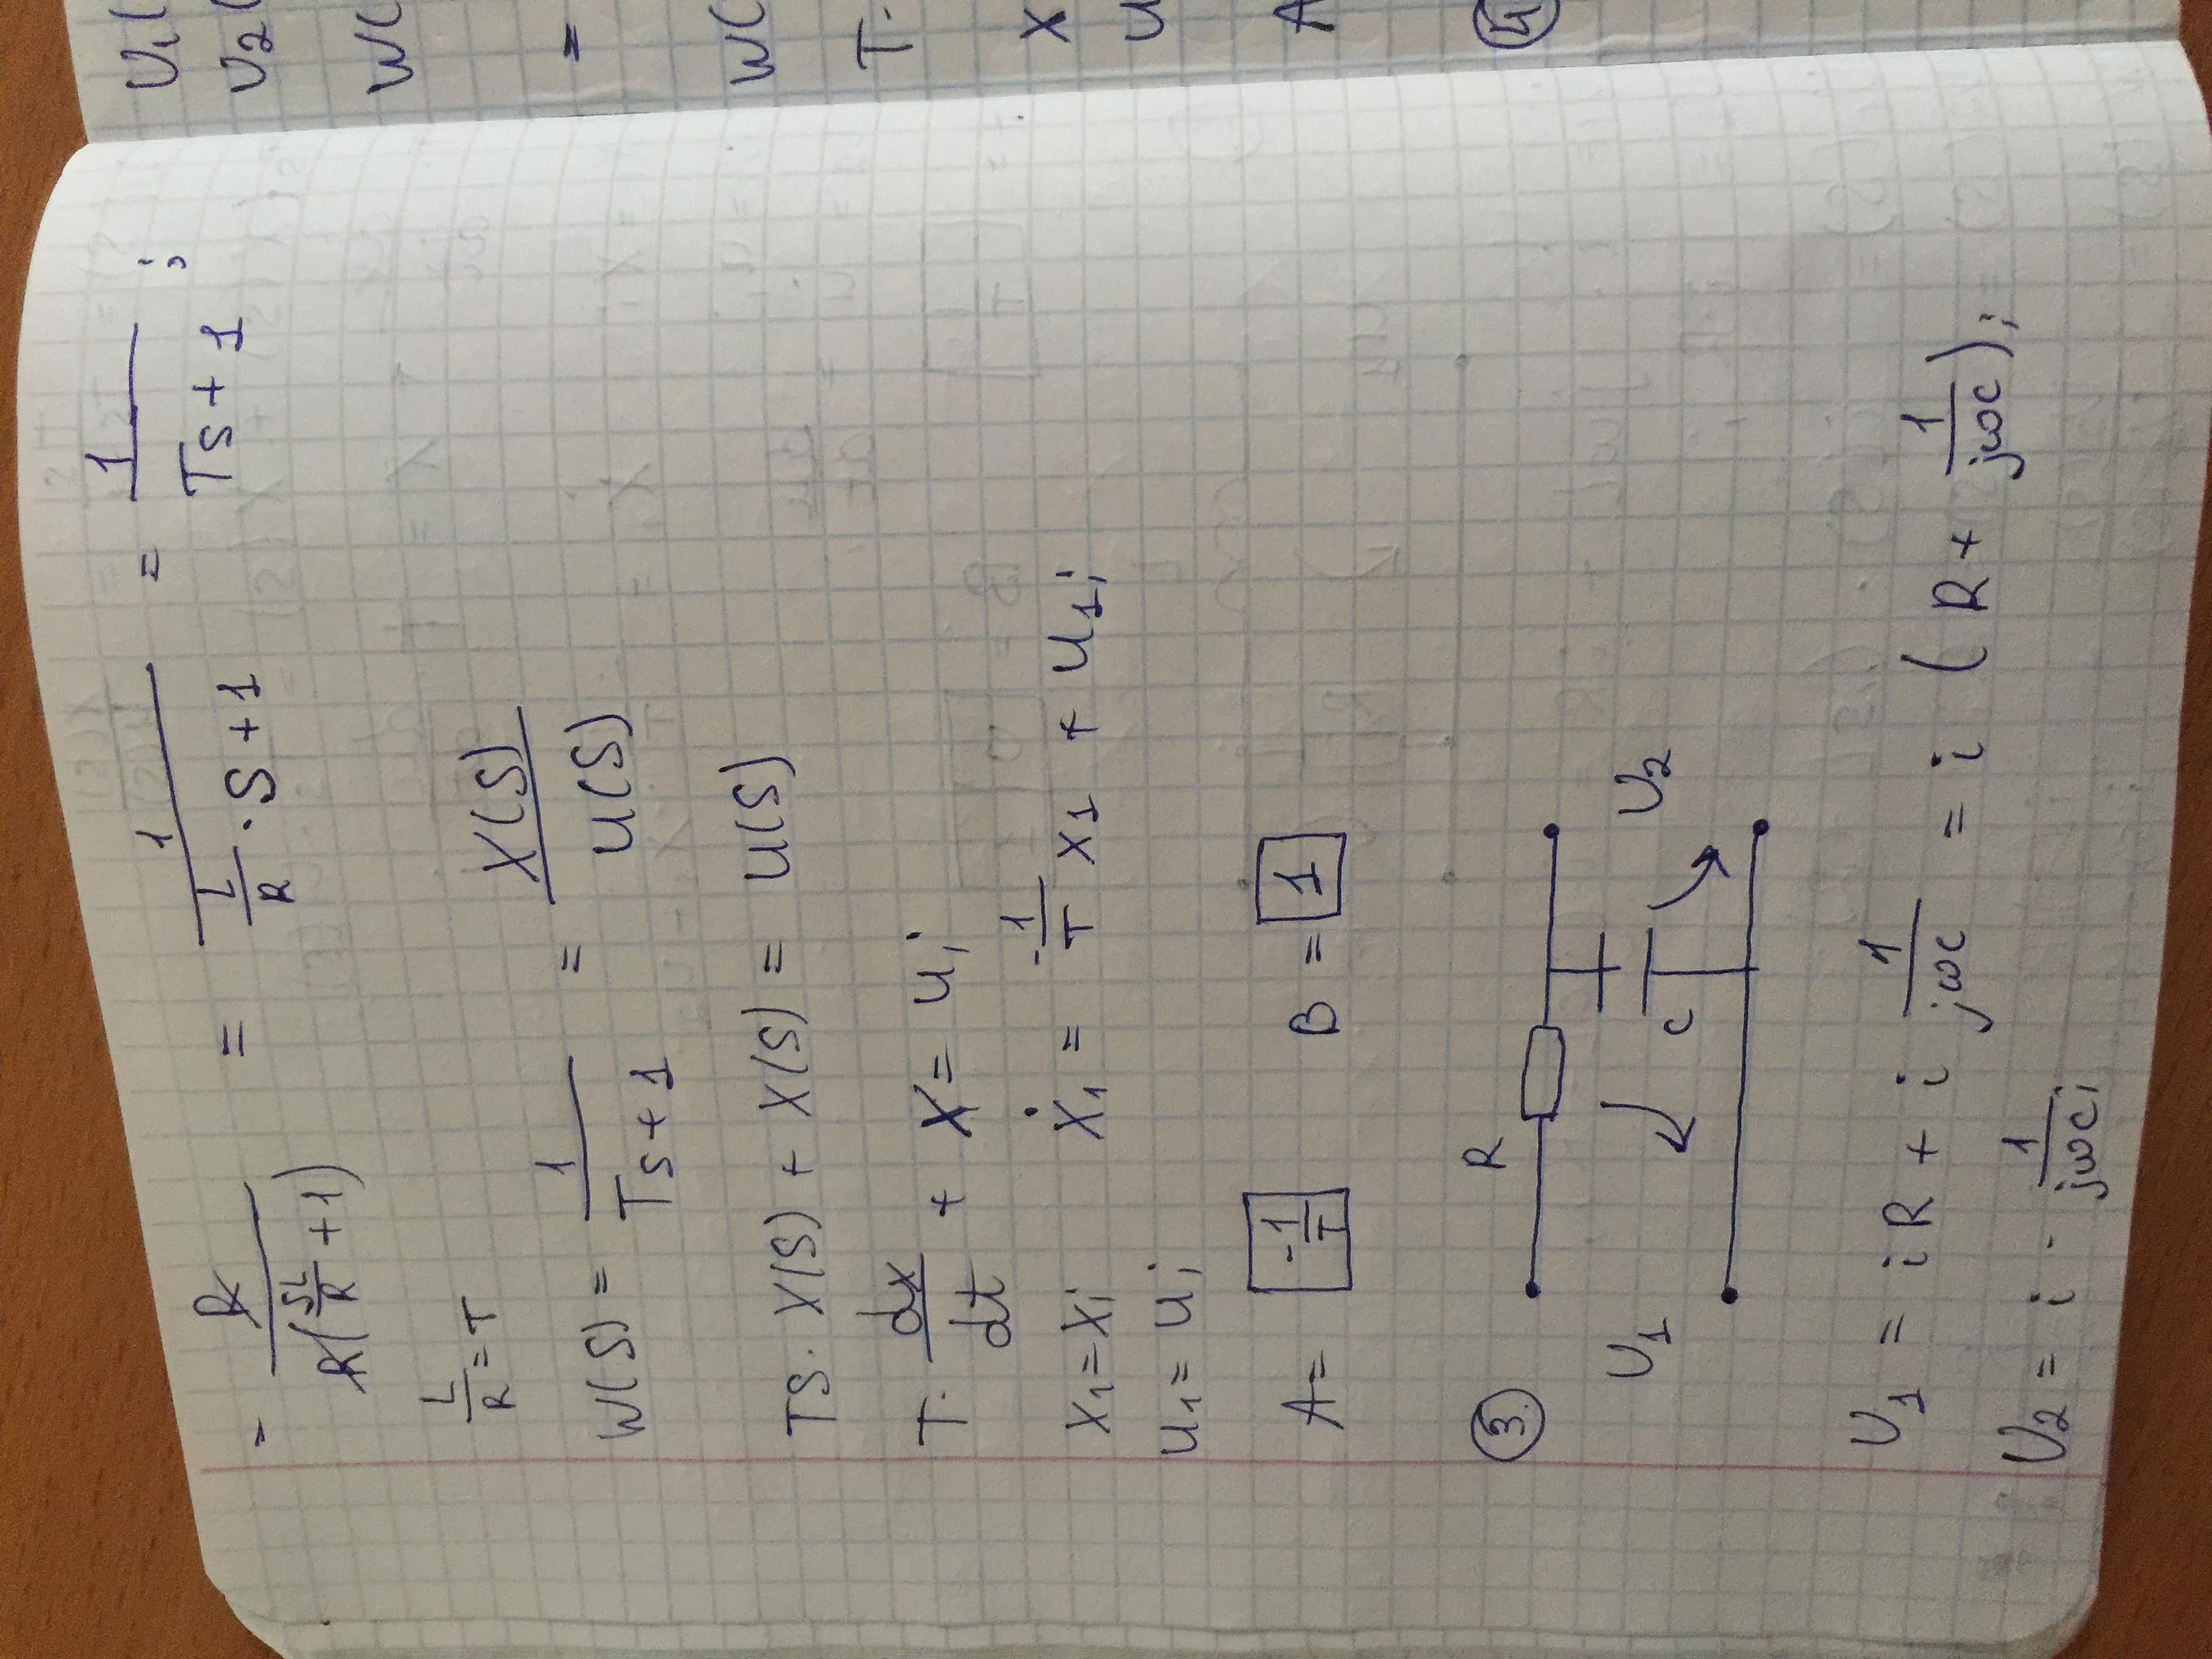 = R / R(SL/R + 1) = 1 / (L/R · S + 1) = 1 / (Ts + 1) ;
L/R = T
W(S) = 1 / (Ts + 1) = X(S) / U(S)
TS · X(S) + X(S) = U(S)
T · dx/dt + X = u;
x₁ = x; ẋ₁ = -1/T x₁ + u₁;
u₁ = u;
A = -1/T B = 1
3.
R
U₁ C U₂
U₁ = iR + i 1/jωc = i (R + 1/jωc);
U₂ = i · 1/jωc;
U₁(
U₂(
W(
=
W(
T·
X
U
A
4